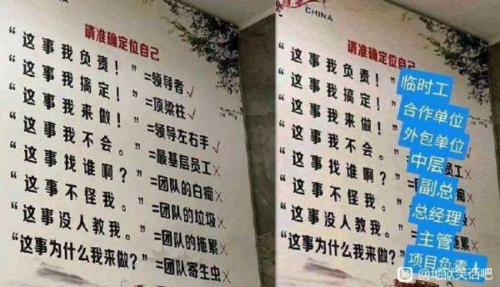 请准确定位自己
“这事我负责！”=领导者✓
“这事我搞定！”=顶梁柱✓
“这事我来做！”=领导左右手✓
“这事我不会。”=最基层员工✓
“这事找谁啊？”=团队的白痴×
“这事不怪我。”=团队的垃圾×
“这事没人教我。”=团队的拖累×
“这事为什么我来做？”=团队寄生虫×
CHINA
请准确定位自己
“这事我负责！”临时工
“这事我搞定！”合作单位
“这事我来做！”外包单位
“这事我不会。”中层员工✓
“这事找谁啊？”副总痴×
“这事不怪我。”总经理圾×
“这事没人教我。”=主管拖累×
“这事为什么我来做？”项目负责人